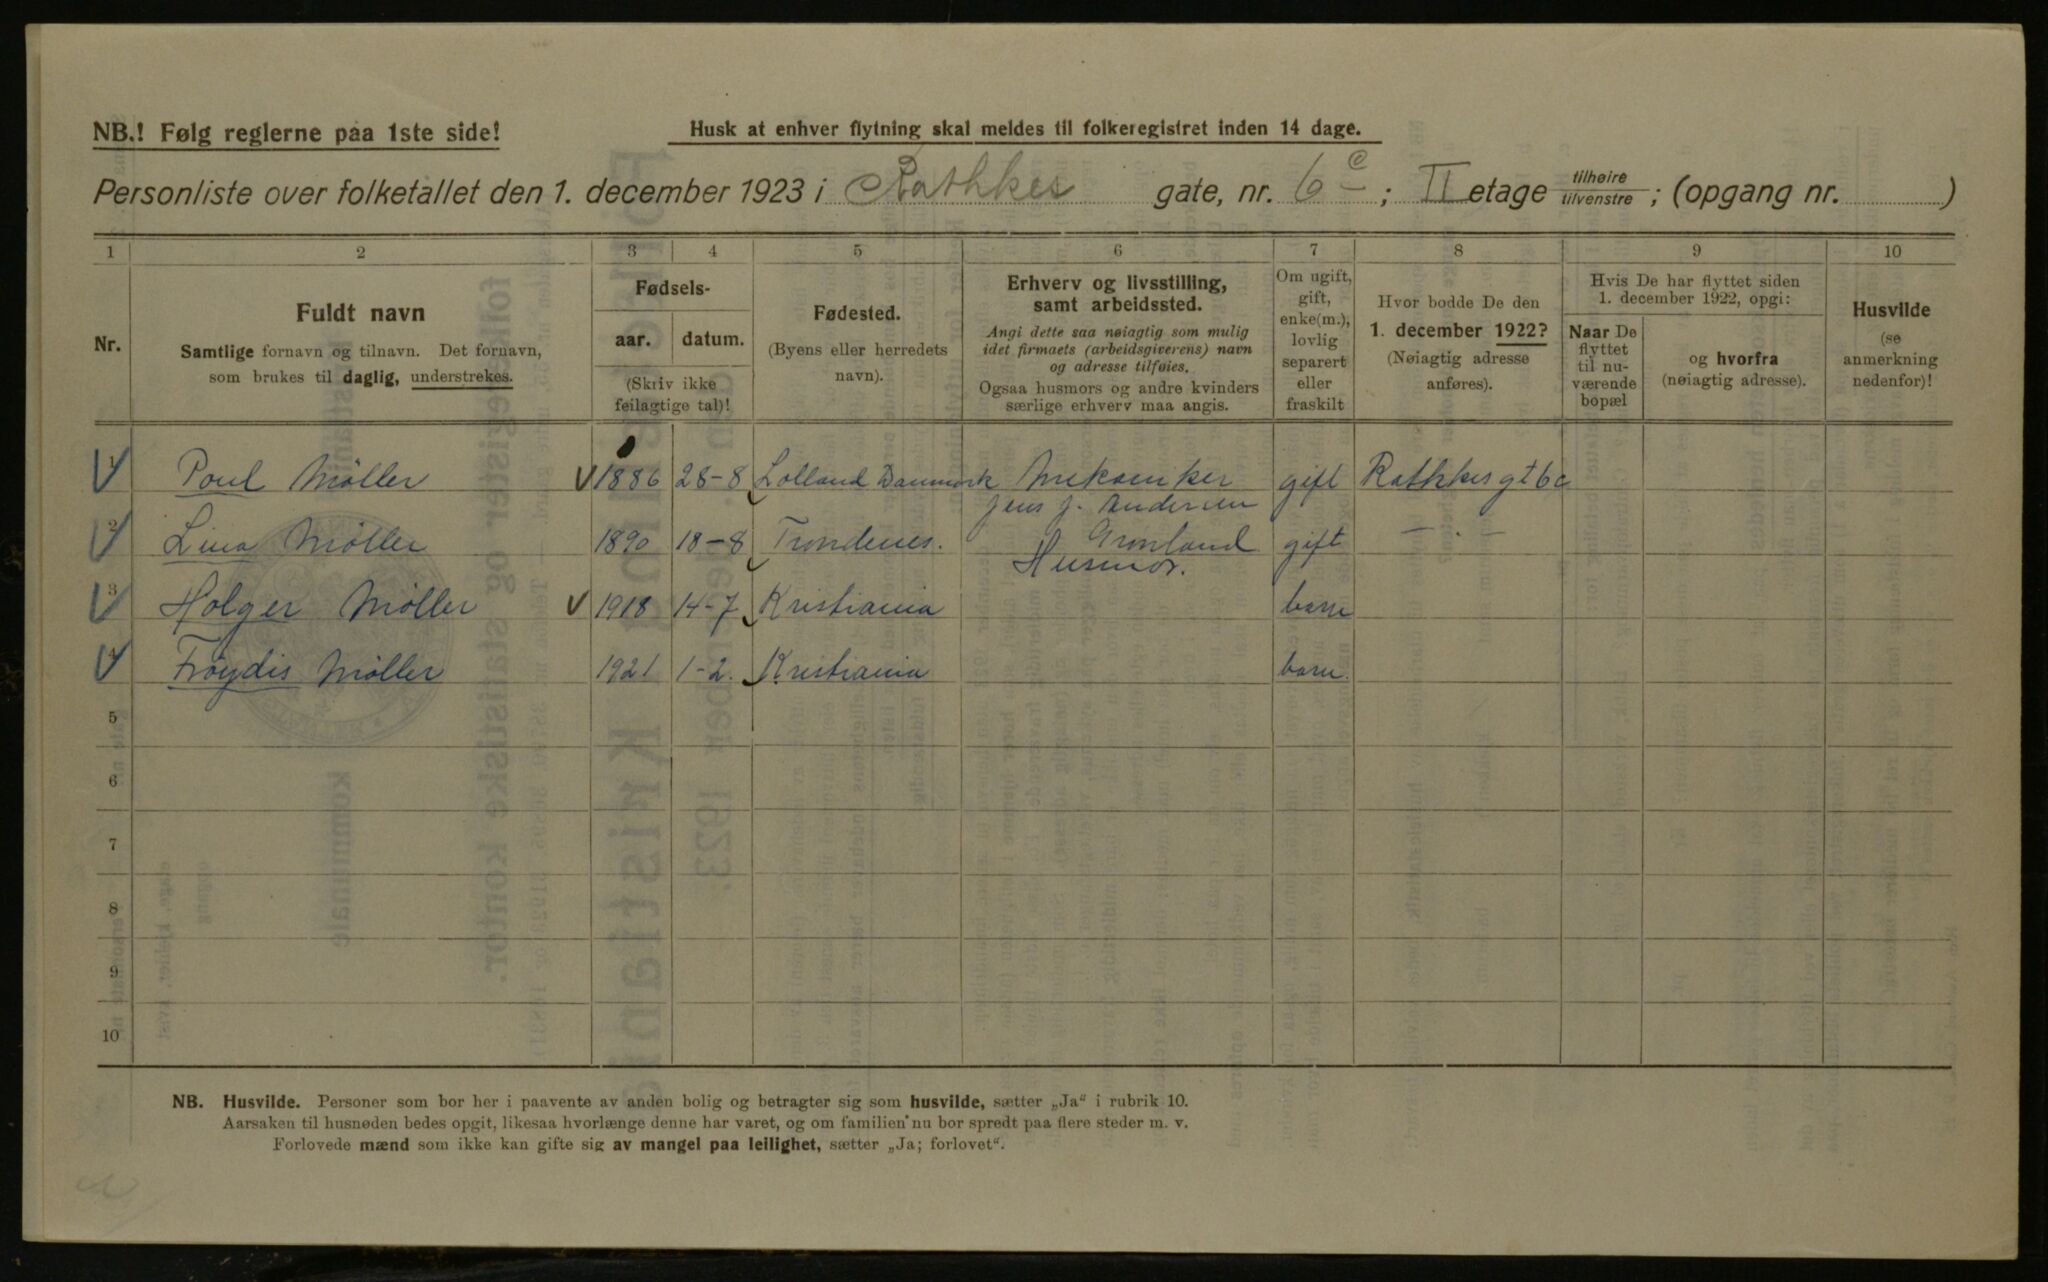 NB.! Følg reglerne paa 1ste side!
Husk at enhver flytning skal meldes til folkeregistret inden 14 dage.
Personliste over folketallet den 1. december 1923 i Rathkes gate, nr. 6c ; II etage tilhøire tilvenstre ; (opgang nr. )
1 2 3 4 5 6 7 8 9 10
Nr.
Fuldt navn
Samtlige fornavn og tilnavn. Det fornavn,
som brukes til daglig, understrekes.
Fødsels-
aar. datum.
(Skriv ikke
feilagtige tal)!
Fødested.
(Byens eller herredets
navn).
Erhverv og livsstilling,
samt arbeidssted.
Angi dette saa nøiagtig som mulig
idet firmaets (arbeidsgiverens) navn
og adresse tilføies.
Ogsaa husmors og andre kvinders
særlige erhverv maa angis.
Om ugift,
gift,
enke(m.),
lovlig
separert
eller
fraskilt
Hvor bodde De den
1. december 1922?
(Nøiagtig adresse
anføres).
Hvis De har flyttet siden
1. december 1922, opgi:
Naar De
flyttet
til nu-
værende
bopæl
og hvorfra
(nøiagtig adresse).
Husvilde
(se
anmerkning
nedenfor)!
1 Poul Møller 1886 28-8 Lolland Danmark Mekaniker gift Rathkes gt 6c
Jens J. Andersen
Grønland
2 Lina Møller 1890 18-8 Trondenes. Husmor. gift — " —
3 Holger Møller 1918 14-7 Kristiania barn
4 Frøydis Møller 1921 1-2. Kristiania barn.
5
6
7
8
9
10
NB. Husvilde. Personer som bor her i paavente av anden bolig og betragter sig som husvilde, sætter „Ja" i rubrik 10.
Aarsaken til husnøden bedes opgit, likesaa hvorlænge denne har varet, og om familien nu bor spredt paa flere steder m. v.
Forlovede mænd som ikke kan gifte sig av mangel paa leilighet, sætter „Ja; forlovet".